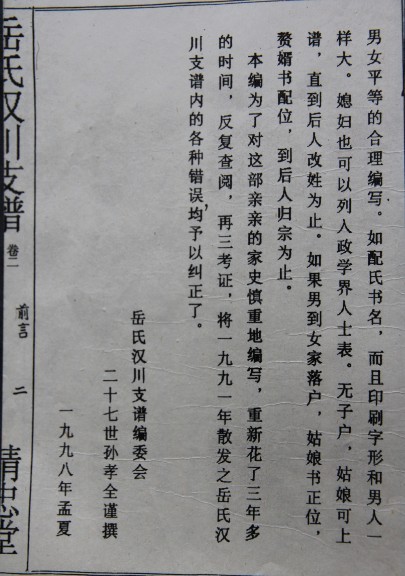 男女平等的合理编写。如配氏书名，而且印刷字形和男人一
样大。媳妇也可以列入政学界人士表。无子户，姑娘可上
谱，直到后人改姓为止。如果男到女家落户，姑娘书正位，
赘婿书配位，到后人归宗为止。
本编为了对这部亲亲的家史慎重地编写，重新花了三年多
的时间，反复查阅，再三考证，将一九九一年散发之岳氏汉
川支谱内的各种错误，均予以纠正了。
岳氏汉川支谱编委会
二十七世孙孝全谨撰
一九九八年孟夏
岳氏汉川支谱
卷二
前言
二
精忠堂